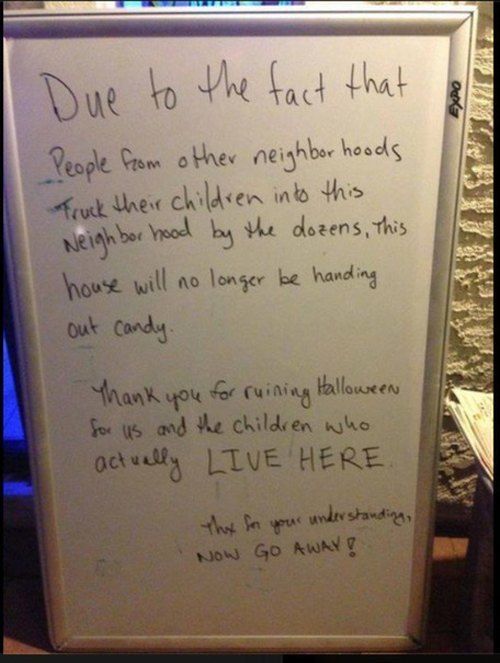 Due to the fact that
EXPO
People from other neighborhoods
Truck their children into this
Neighborhood by the dozens, This
house will no longer be handing
out candy.
Thank you for ruining Halloween
for us and the children who
actually LIVE HERE.
Thx for your understanding,
NOW GO AWAY!